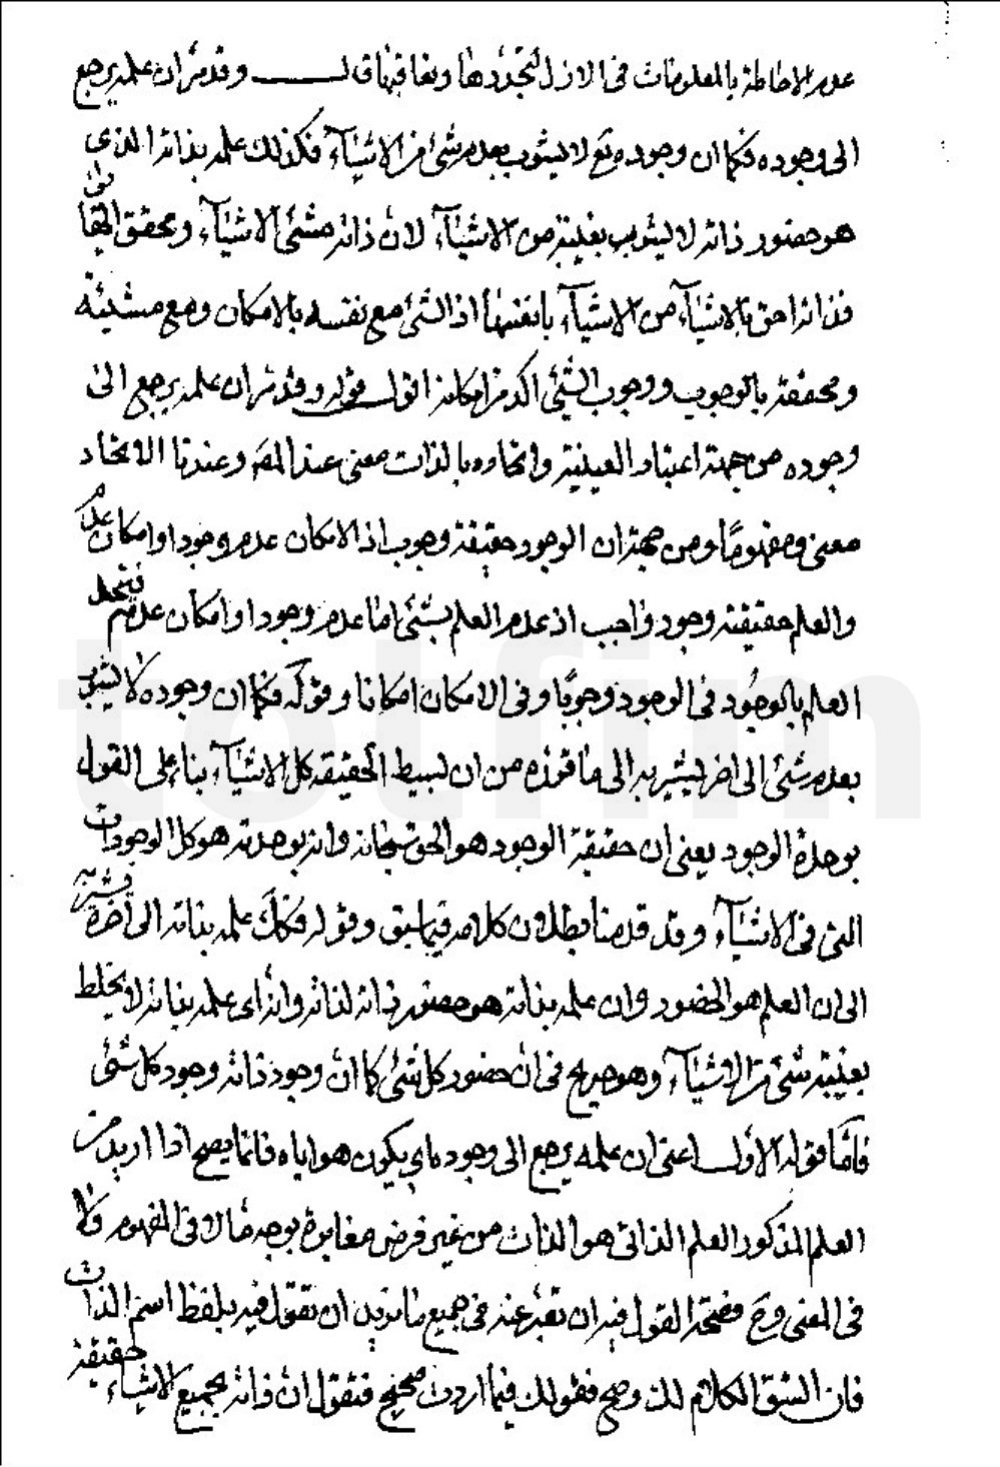 عدم الاحاطة بالمعلومات فى الازل لتجددها وتعاقبها قال وقد مر ان علمه يرجع
الى وجوده فكما ان وجوده تع لا يشوب بعدم شئ من الاشياء فكذلك علمه بذاته الذى
هو حضور ذاته لا يشوب بغيبة من الاشياء لان ذاته مشئ الاشياء ومحقق الحقايق
فذاته احق بالاشياء من الاشياء بانفسها اذ الشئ مع نفسه بالامكان ومع مشيئه
ومحققه بالوجوب ووجوب الشئ اكد من امكانه اقول قوله وقد مر ان علمه يرجع الى
وجوده من جهة اعتبار العينية واتحاده بالذات معنى عند المص وعندنا الاتحاد
معنى ومفهوما ومن جهة ان الوجود حقيقة وجوب اذ الامكان عدم وجود او امكان عدم
والعلم حقيقته وجود واجب اذ عدم العلم بشئ اما عدم وجود او امكان عدم فيتحد
العلم بالوجود فى الوجود وجوبا وفى الامكان امكانا وقوله فكما ان وجوده لا يشوب
بعدم شئ الى اخر يشير به الى ما قرره من ان بسيط الحقيقة كل الاشياء بناء على القول
بوحدة الوجود يعنى ان حقيقة الوجود هو الحق سبحانه وانه بوحدته هو كل الوجودات
التى فى الاشياء وقد قدمنا بطلان كلامه فيما سبق وقوله فكك علمه بذاته الى اخره يشير به
الى ان العلم هو الحضور وان علمه بذاته هو حضور ذاته لذاته وانه اى علمه بذاته لا يخلط
بغيبة شئ من الاشياء وهو صريح فى ان حضور كل شئ كما ان وجود ذاته وجود كل شئ
فاما قوله الاول اعنى ان علمه يرجع الى وجوده اى يكون هو اياه فانما يصح اذا اريد من
العلم المذكور العلم الذاتى هو الذات من غير فرض مغايرة بوجه ما لا فى المفهوم ولا
فى المعنى وح فصحة القول فيه ان تعبر عنه فى جميع ما تريد ان تقول فيه بلفظ اسم الذات
فان اتسق الكلام لك وصح فقولك فيما اردت صحيح فتقول ان ذاته بجميع الاشياء حقيقة